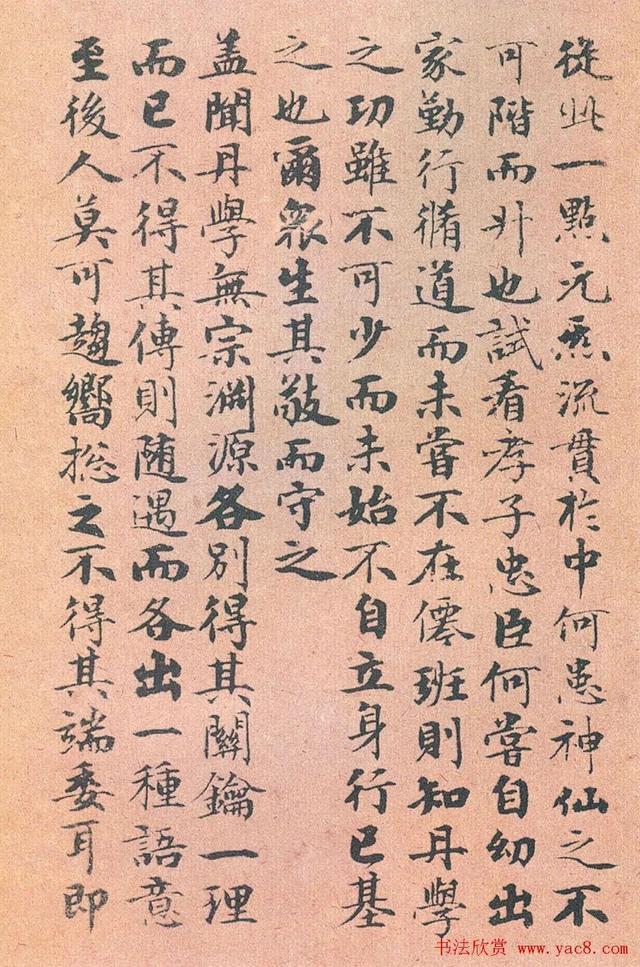 從此一點元炁流貫於中何患神仙之不
可階而升也試看孝子忠臣何嘗自幼出
家勤行脩道而未嘗不在僊班則知丹學
之功雖不可少而未始不自立身行己基
之也爾衆生其敬而守之
蓋聞丹學無宗淵源各別得其關鑰一理
而已不得其傳則随遇而各出一種語意
至後人莫可趨嚮揔之不得其端委耳即
书法欣赏 www.yac8.com